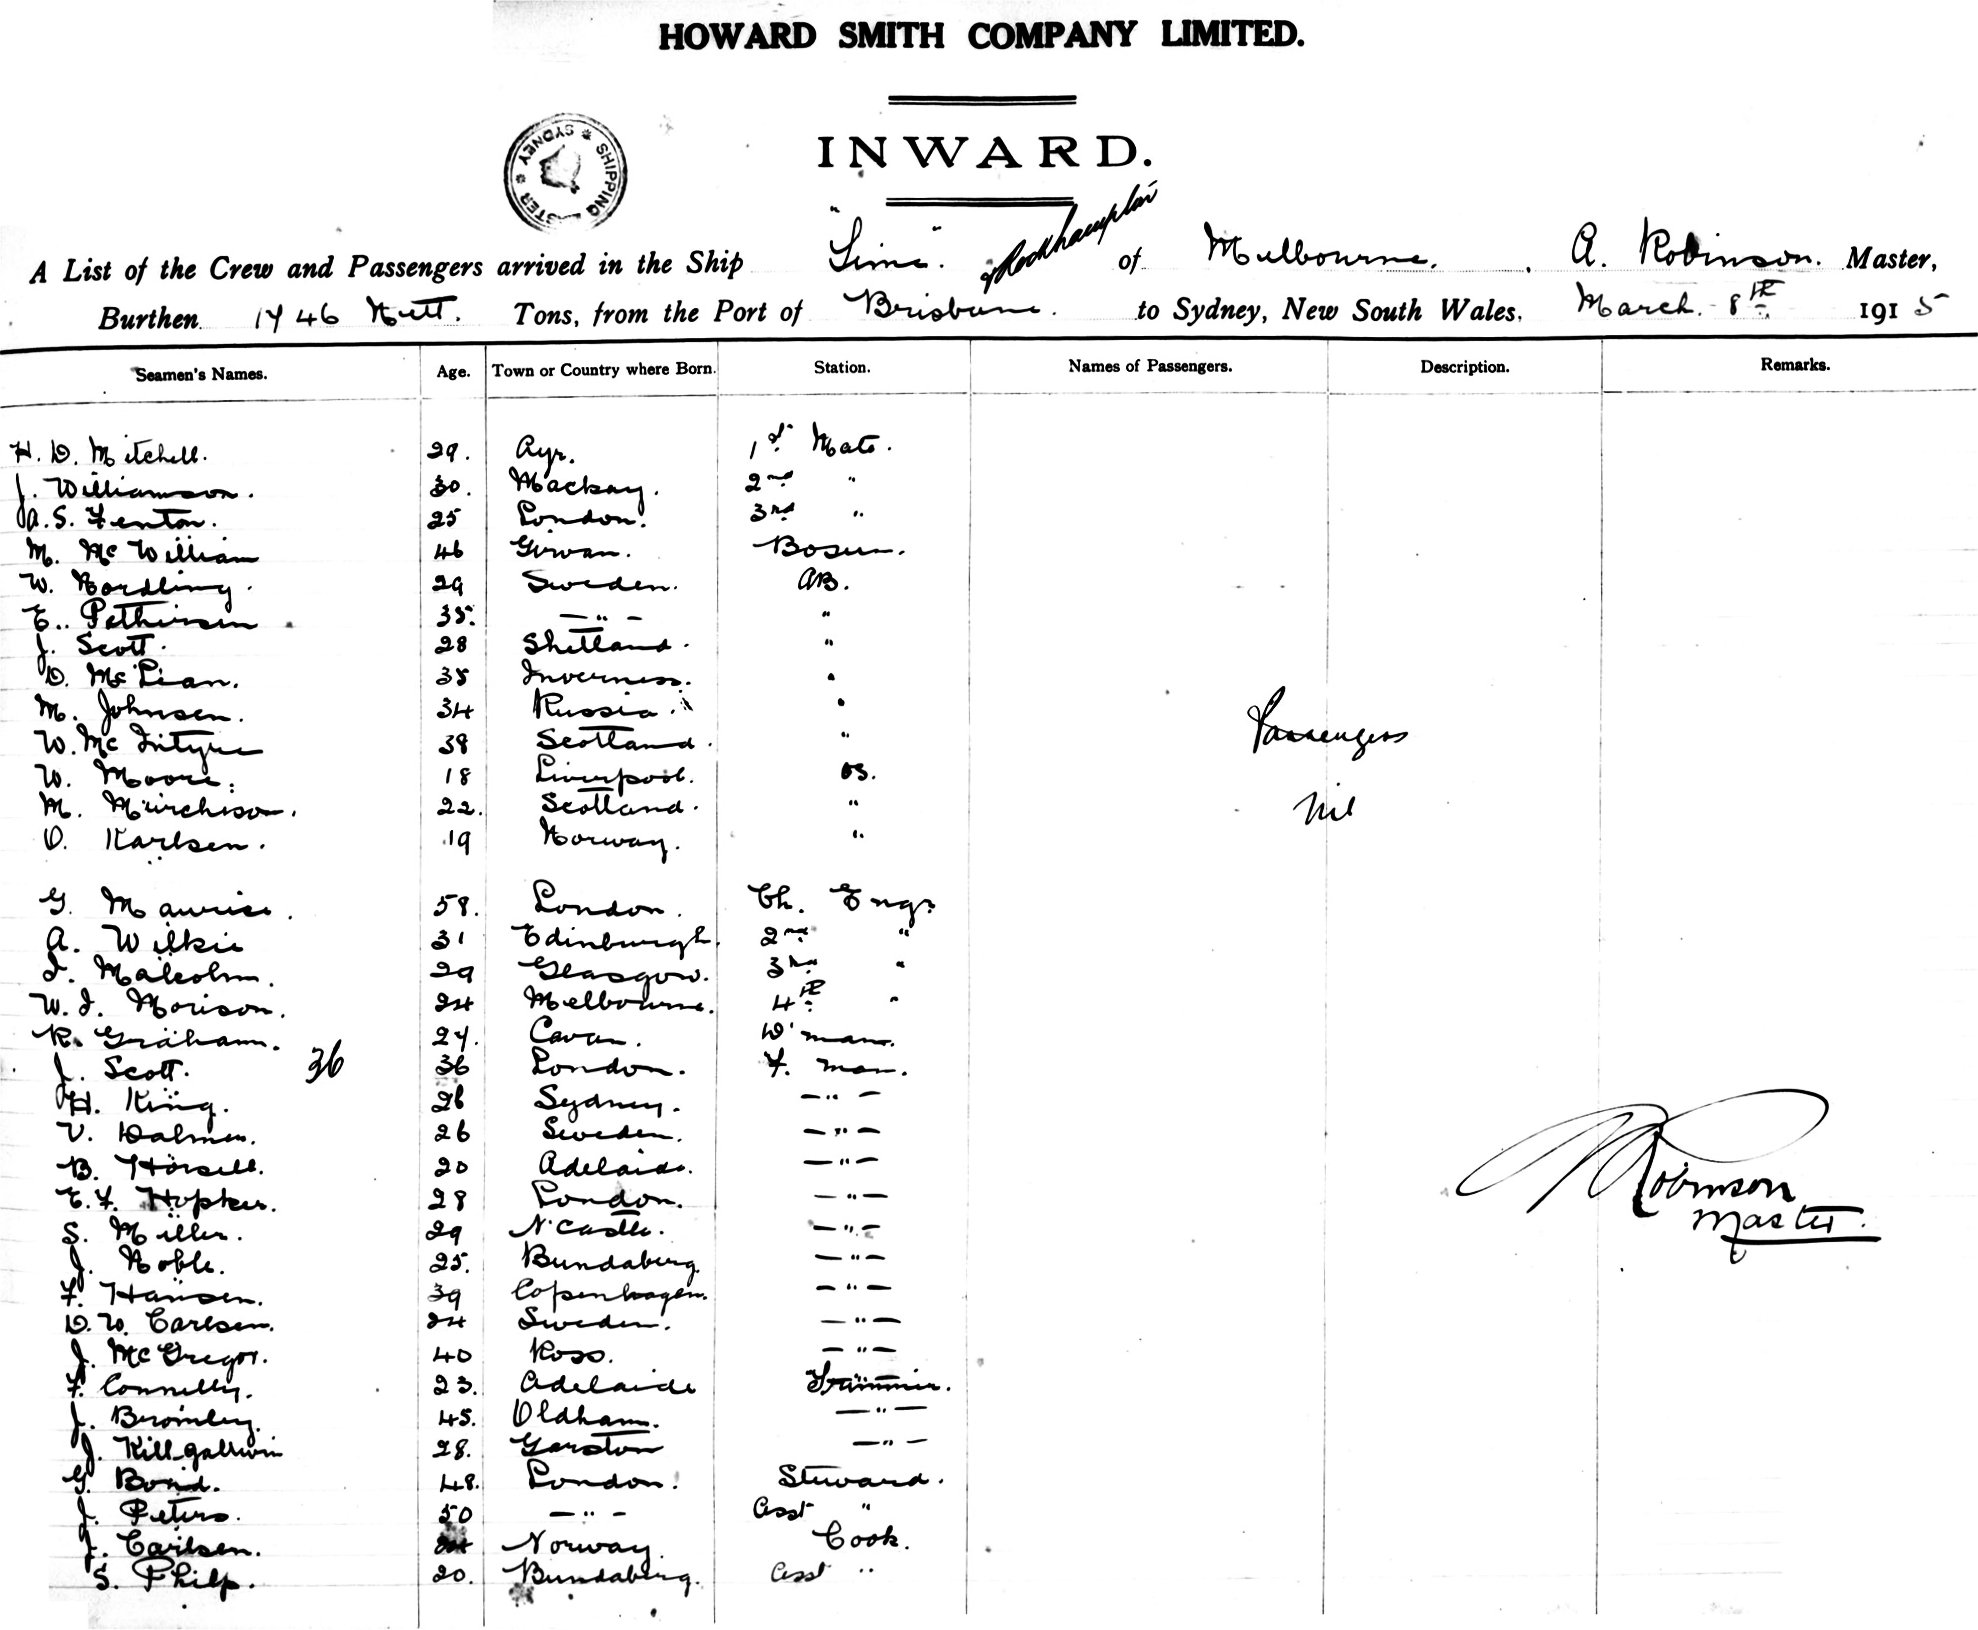 HOWARD SMITH COMPANY LIMITED.
INWARD.
SHIPPING MASTER * SYDNEY *
A List of the Crew and Passengers arrived in the Ship "Time". & Rockhampton of Melbourne. A. Robinson. Master,
Burthen 1746 Nett. Tons, from the Port of Brisbane. to Sydney, New South Wales. March. 8th 1915
Seamen's Names. Age. Town or Country where Born. Station. Names of Passengers. Description. Remarks.
H. D. Mitchell. 29. Ayr. 1st Mate.
J. Williamson. 30. Mackay. 2nd "
A. S. Fenton. 25 London. 3rd "
M. McWilliam 46 Girvan. Bosun.
W. Nordling. 29 Sweden. AB.
E. Pethersen 35. —"— "
J. Scott. 28 Shetland. "
D. McLean. 38 Inverness. "
M. Johnsen. 34 Russia. "
W. McIntyre 39 Scotland. "
Passengers
W. Moore. 18 Liverpool. OS.
M. Murchison. 22. Scotland. "
Nil
O. Karlsen. 19 Norway. "
G. Maurice. 58. London. Ch. Engr
A. Wilkie 31 Edinburgh. 2nd "
I. Malcolm. 29 Glasgow. 3rd "
W. I. Morison. 24 Melbourne. 4th "
R. Graham. 27. Cavan. D'man.
J. Scott. 36 36 London. F. man.
H. King. 26 Sydney. —"—
V. Dalmen. 26 Sweden. —"—
B. Horsell. 20 Adelaide. —"—
E. F. Hopker. 28 London. —"—
Robinson
Master.
S. Miller. 29 N'Castle. —"—
J. Noble. 25. Bundaberg —"—
F. Hansen. 39 Copenhagen. —"—
D. W. Carlsen. 24 Sweden. —"—
J. McGregor. 40 Ross. —"—
F. Connelly. 23. Adelaide Trimmer.
J. Bromley. 45. Oldham. —"—
J. Killgallwin 28. Garston —"—
G. Bond. 48. London. Steward.
J. Peters. 50 —"— Asst "
J. Carlsen. Norway. Cook.
S. Philp. 20. Bundaberg. Asst "